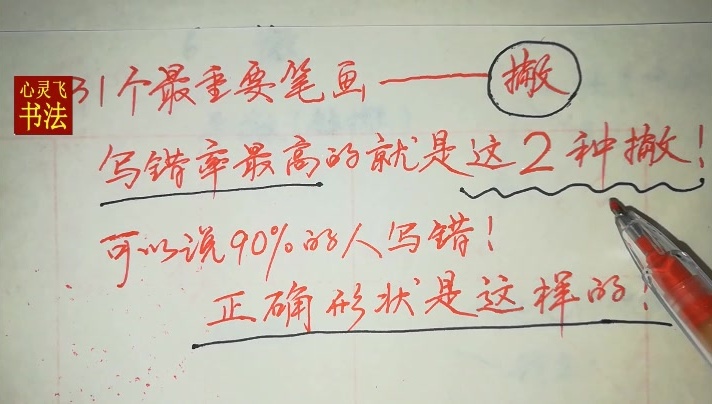 心灵飞
书法
31个最重要笔画——撇
写错率最高的就是这2种撇！
可以说90%的人写错！
正确形状是这样的！